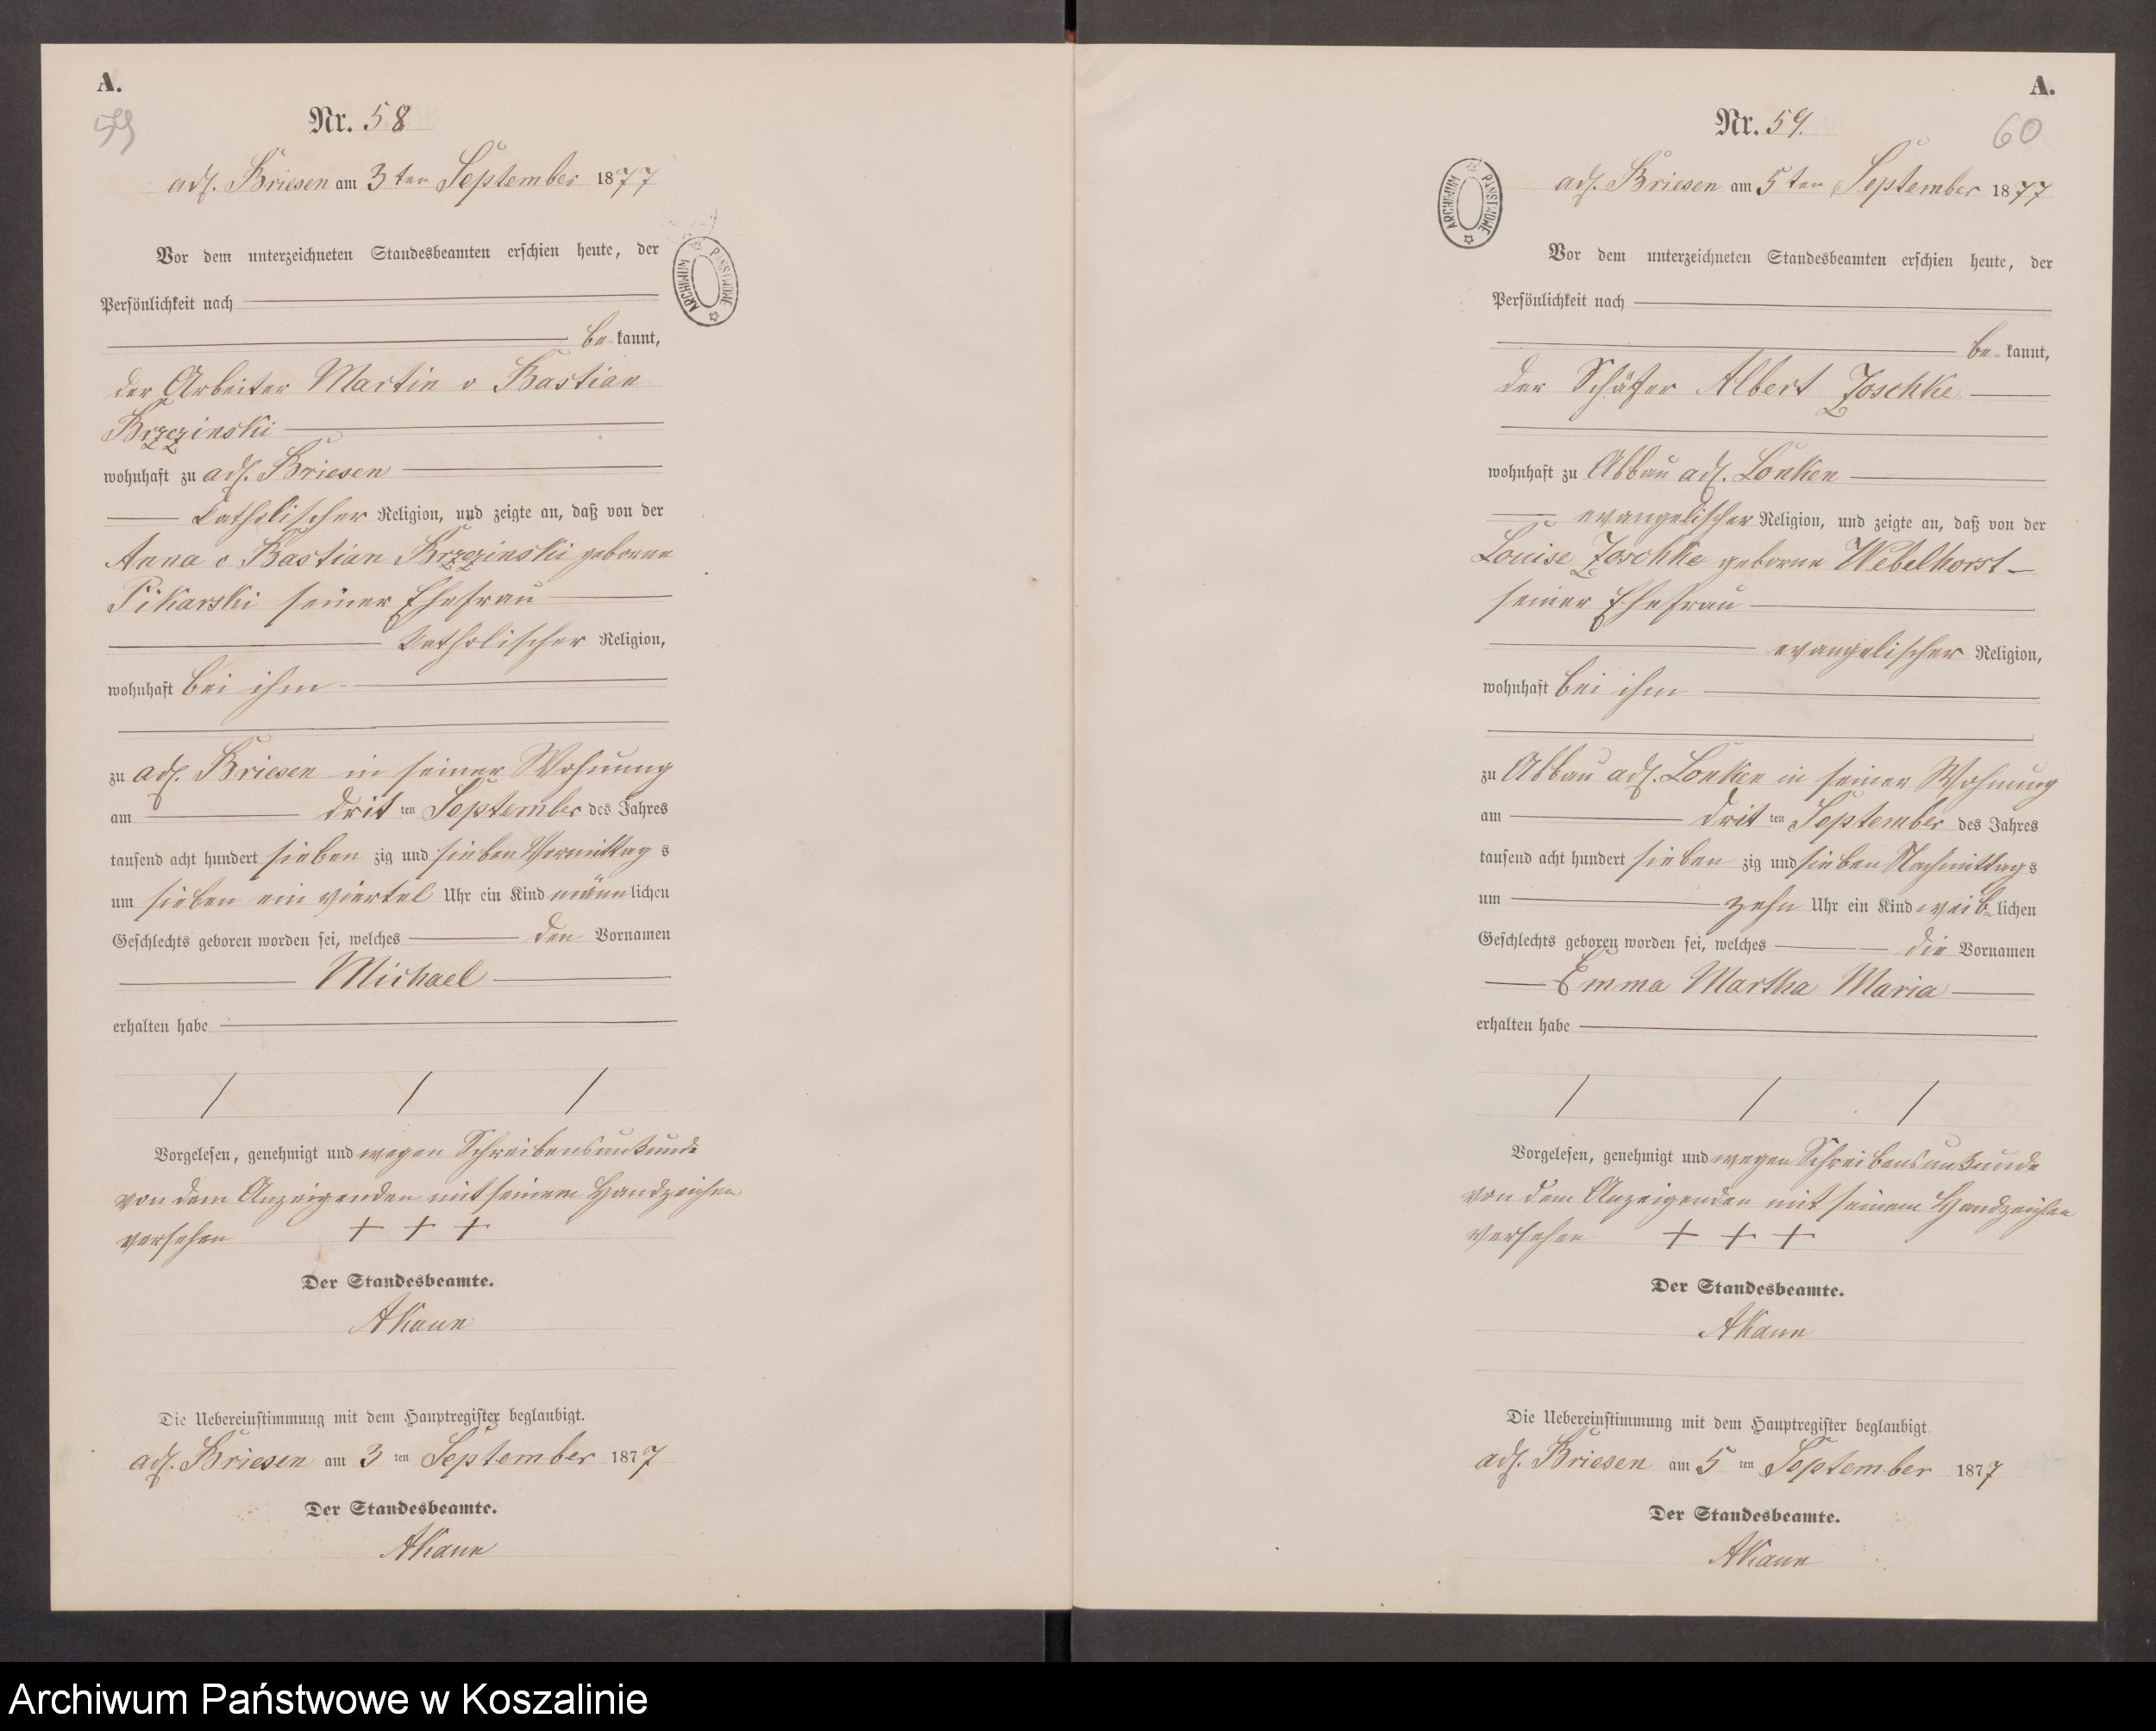 A.
59
Nr. 58
adl. Briesen am 3ten September 1877
Vor dem unterzeichneten Standesbeamten erschien heute, der
Persönlichkeit nach
be kannt,
der Arbeiter Martin v Bastian
Brzezinski
wohnhaft zu adl. Briesen
katholischer Religion, und zeigte an, daß von der
Anna v Bastian Brzezinski geborne
Pikarski seiner Ehefrau
katholischer Religion,
wohnhaft bei ihm
zu adl. Briesen in seiner Wohnung
am drit ten September des Jahres
tausend acht hundert sieben zig und sieben Vormittag s
um sieben ein viertel Uhr ein Kind männ lichen
Geschlechts geboren worden sei, welches den Vornamen
Michael
erhalten habe
Vorgelesen, genehmigt und wegen Schreibensunkunde
von dem Anzeigenden mit seinem Handzeichen
versehen + + +
Der Standesbeamte.
AKaun
Die Uebereinstimmung mit dem Hauptregister beglaubigt.
adl. Briesen am 3 ten September 1877
Der Standesbeamte.
AKaun
ARCHIWUM PAŃSTWOWE
A.
60
Nr. 59.
adl. Briesen am 5ten September 1877
Vor dem unterzeichneten Standesbeamten erschien heute, der
Persönlichkeit nach
be kannt,
der Schäfer Albert Joschke
wohnhaft zu Abbau adl. Lonken
evangelischer Religion, und zeigte an, daß von der
Louise Joschke geborne Webelhorst
seiner Ehefrau
evangelischer Religion,
wohnhaft bei ihm
zu Abbau adl. Lonken in seiner Wohnung
am drit ten September des Jahres
tausend acht hundert sieben zig und sieben Nachmittag s
um zehn Uhr ein Kind weib lichen
Geschlechts geboren worden sei, welches die Vornamen
Emma Martha Maria
erhalten habe
Vorgelesen, genehmigt und wegen Schreibensunkunde
von dem Anzeigenden mit seinem Handzeichen
versehen + + +
Der Standesbeamte.
AKaun
Die Uebereinstimmung mit dem Hauptregister beglaubigt
adl. Briesen am 5 ten September 1877
Der Standesbeamte.
AKaun
ARCHIWUM PAŃSTWOWE
Archiwum Państwowe w Koszalinie